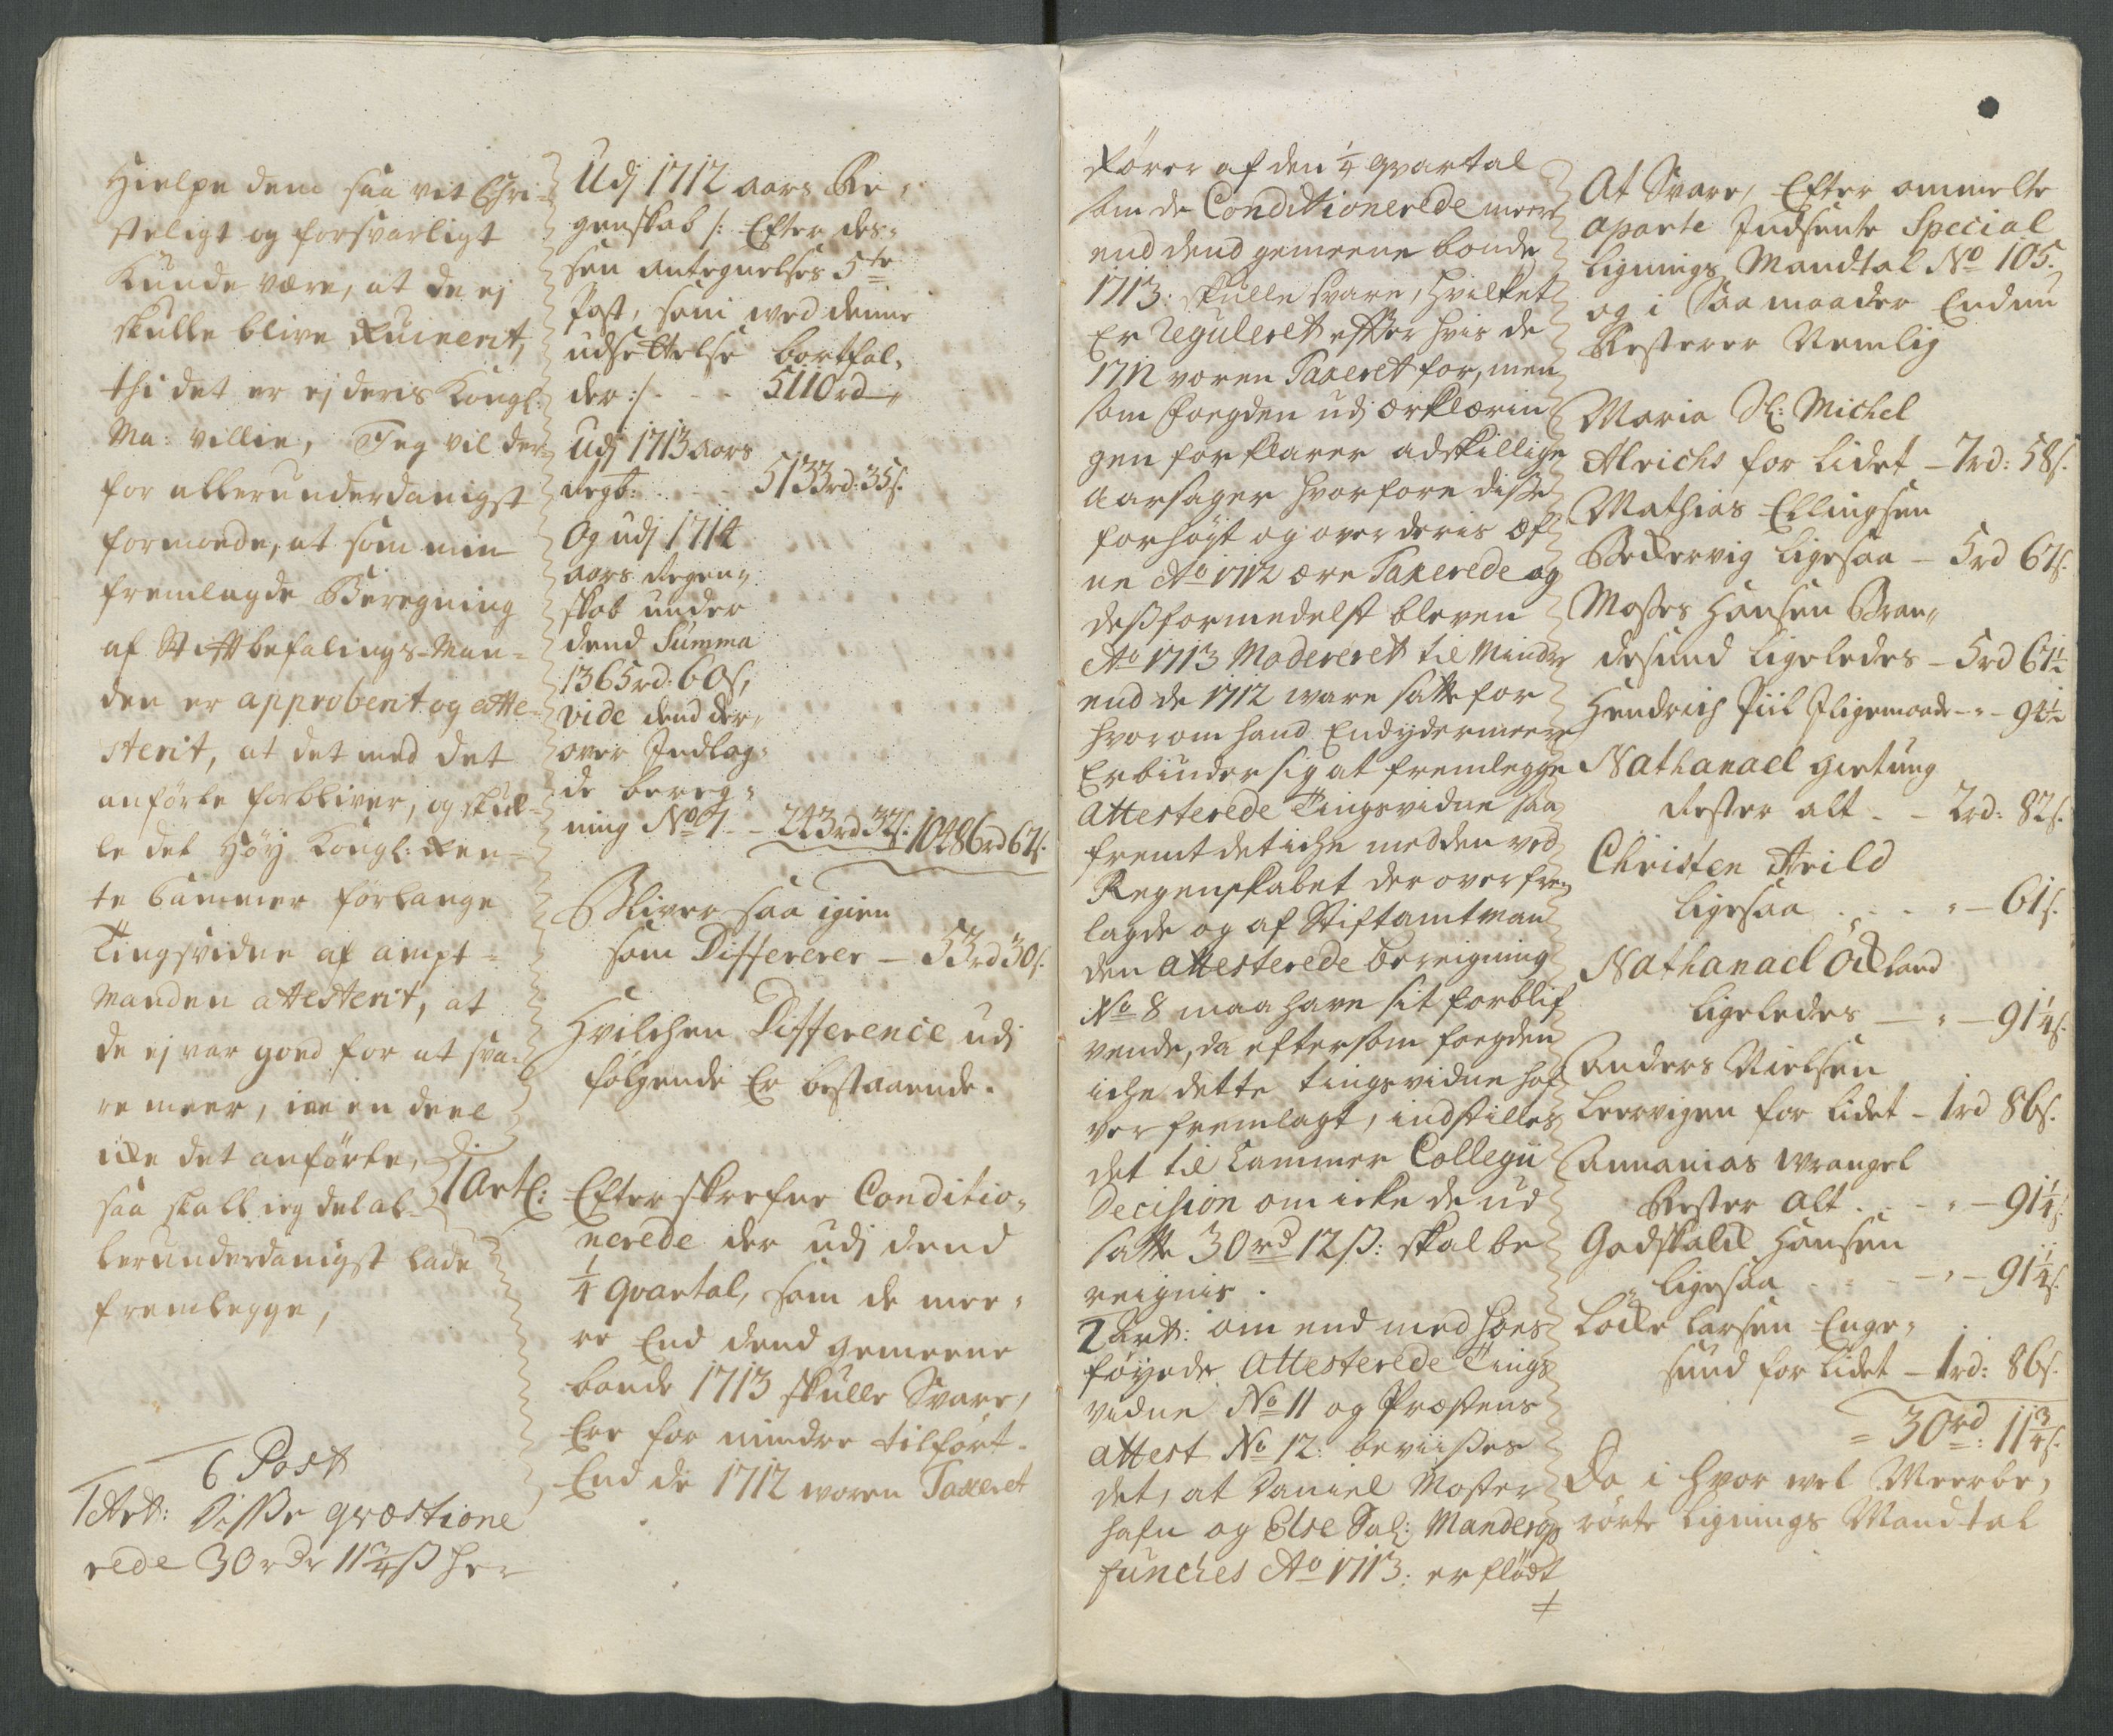 Hielpe dem saa vit Chri-
steligt og forsvarligt
Kunde være, at de ej
skulle blive Ruinerit,
thi det er ej deris Kongl:
Ma: villie, Jeg vil der-
for allerunderdanigst
formoede, at som min
fremlagde Beregning
af Stiftbefalings-Man-
den er approberit og atte-
sterit, at det med det
anførte forbliver, og skul-
le det Høÿ Kongl: Ren-
te Cammer forlange
Tingsvidne af ampt-
Manden attesterit, at
de ej var goed for at sva-
re meer, en deel
icke det anførte,
saa skall ieg det al-
lerunderdanigst lade
fremlegge,
6 Post
1 Art: Disse qvæstione
rede 30 rdr 11 3/4 ß her
Udj 1712 aars Re-
genskab /: Efter des-
sen Antegnelses 5te
Post, som med denne
udsettelse bortfal-
der :/ - - - 5110rd - "
Udj 1713 aars
regb: - - - 5133rd: 35s.
Og udj 1714
aars Regen-
skab under
dend Summa
1365rd: 60s,
vide dend der-
over Indlag-
de bereg-
ning No 7 - - 243rd 32s. 10486rd 67s.
Bliver saa igien
som Differerer - 53rd 30s.
Hvilchen Difference udi
følgende Er bestaaende.
1 Artl: Efterskrefne Conditio-
nerede der udj dend
1/4 qvartal, som de mee-
re End dend gemeene
bonde 1713 skulle Svare,
Ere for mindre tilført
End de 1712 woren Taxeret
Rører af den 1/4 qvartal
som de Conditionerede meere
end dend gemeene bonde
1713: skulle svare, hvilket
Er Reguleret effter hvis de
1712 voren Taxeret for, men
som foegden udj Erklærin
gen forklarer adskillige
Aarsager hvorfore disse
for høyt og over deris æf
ne Ao 1712 ære Taxerede og
dessformedelst bleven
Ao 1713 Modereret til Mindre
end de 1712 ware satte for
hvorom hand Endydermeere
Erbinder sig at fremlegge
Attesterede Tingsvidne saa
fremt det iche med den ved
Regenskabet der over frem
lagde og af Stiftamtman
den attesterede bereigning
No 8 maa have sit forblif
vende, da eftersom foegden
iche dette tingsvidne haf
ver fremlagt, indstilles
det til Cammer Collegii
Decision om icke de ud
satte 30rd 12ß: skal be
reignis.
2 Art: om end med hoes
føyede Attesterede Tings
vidne No 11 og Præstens
attest No 12: beviisses
det, at Daniel Moster
hafn og Else Sal: Manderup
funches Ao 1713: er flödt
At Svare, Efter ommelte
aparte Indsente Special
Lignings Mandtal No 105.
og i Saa maader Endnu
Resterer Nemlig
Maria Sl: Michel
Alrichs for lidet - 7rd: 58s.
Mathias Ellingsen
Beckervig ligesaa - 5rd 67s.
Mosses Hansen Bran-
desund ligeledes - 5rd 61 1/2
Hendrich Piil Jligemaade - " - 94 1/2
Nathanael gietung
Rester alt - - 2rd: 82s.
Christen Arild
ligesaa . - - " - 61s.
Nathanael Öckland
ligeledes - " - 91 1/4s.
Anders Nielsen
Leervigen for lidet - 1rd 86s.
Annanias Wrangel
Rester alt . - - " - 91 1/4s.
Godskalck Hansen
ligesaa - - - " - 91 1/4s.
Locke Larsen Enge-
sund for lidet - 1rd: 86s.
= 30rd: 11 3/4s.
Da i hvor vel Meerbe-
rørte Lignings Mandtal